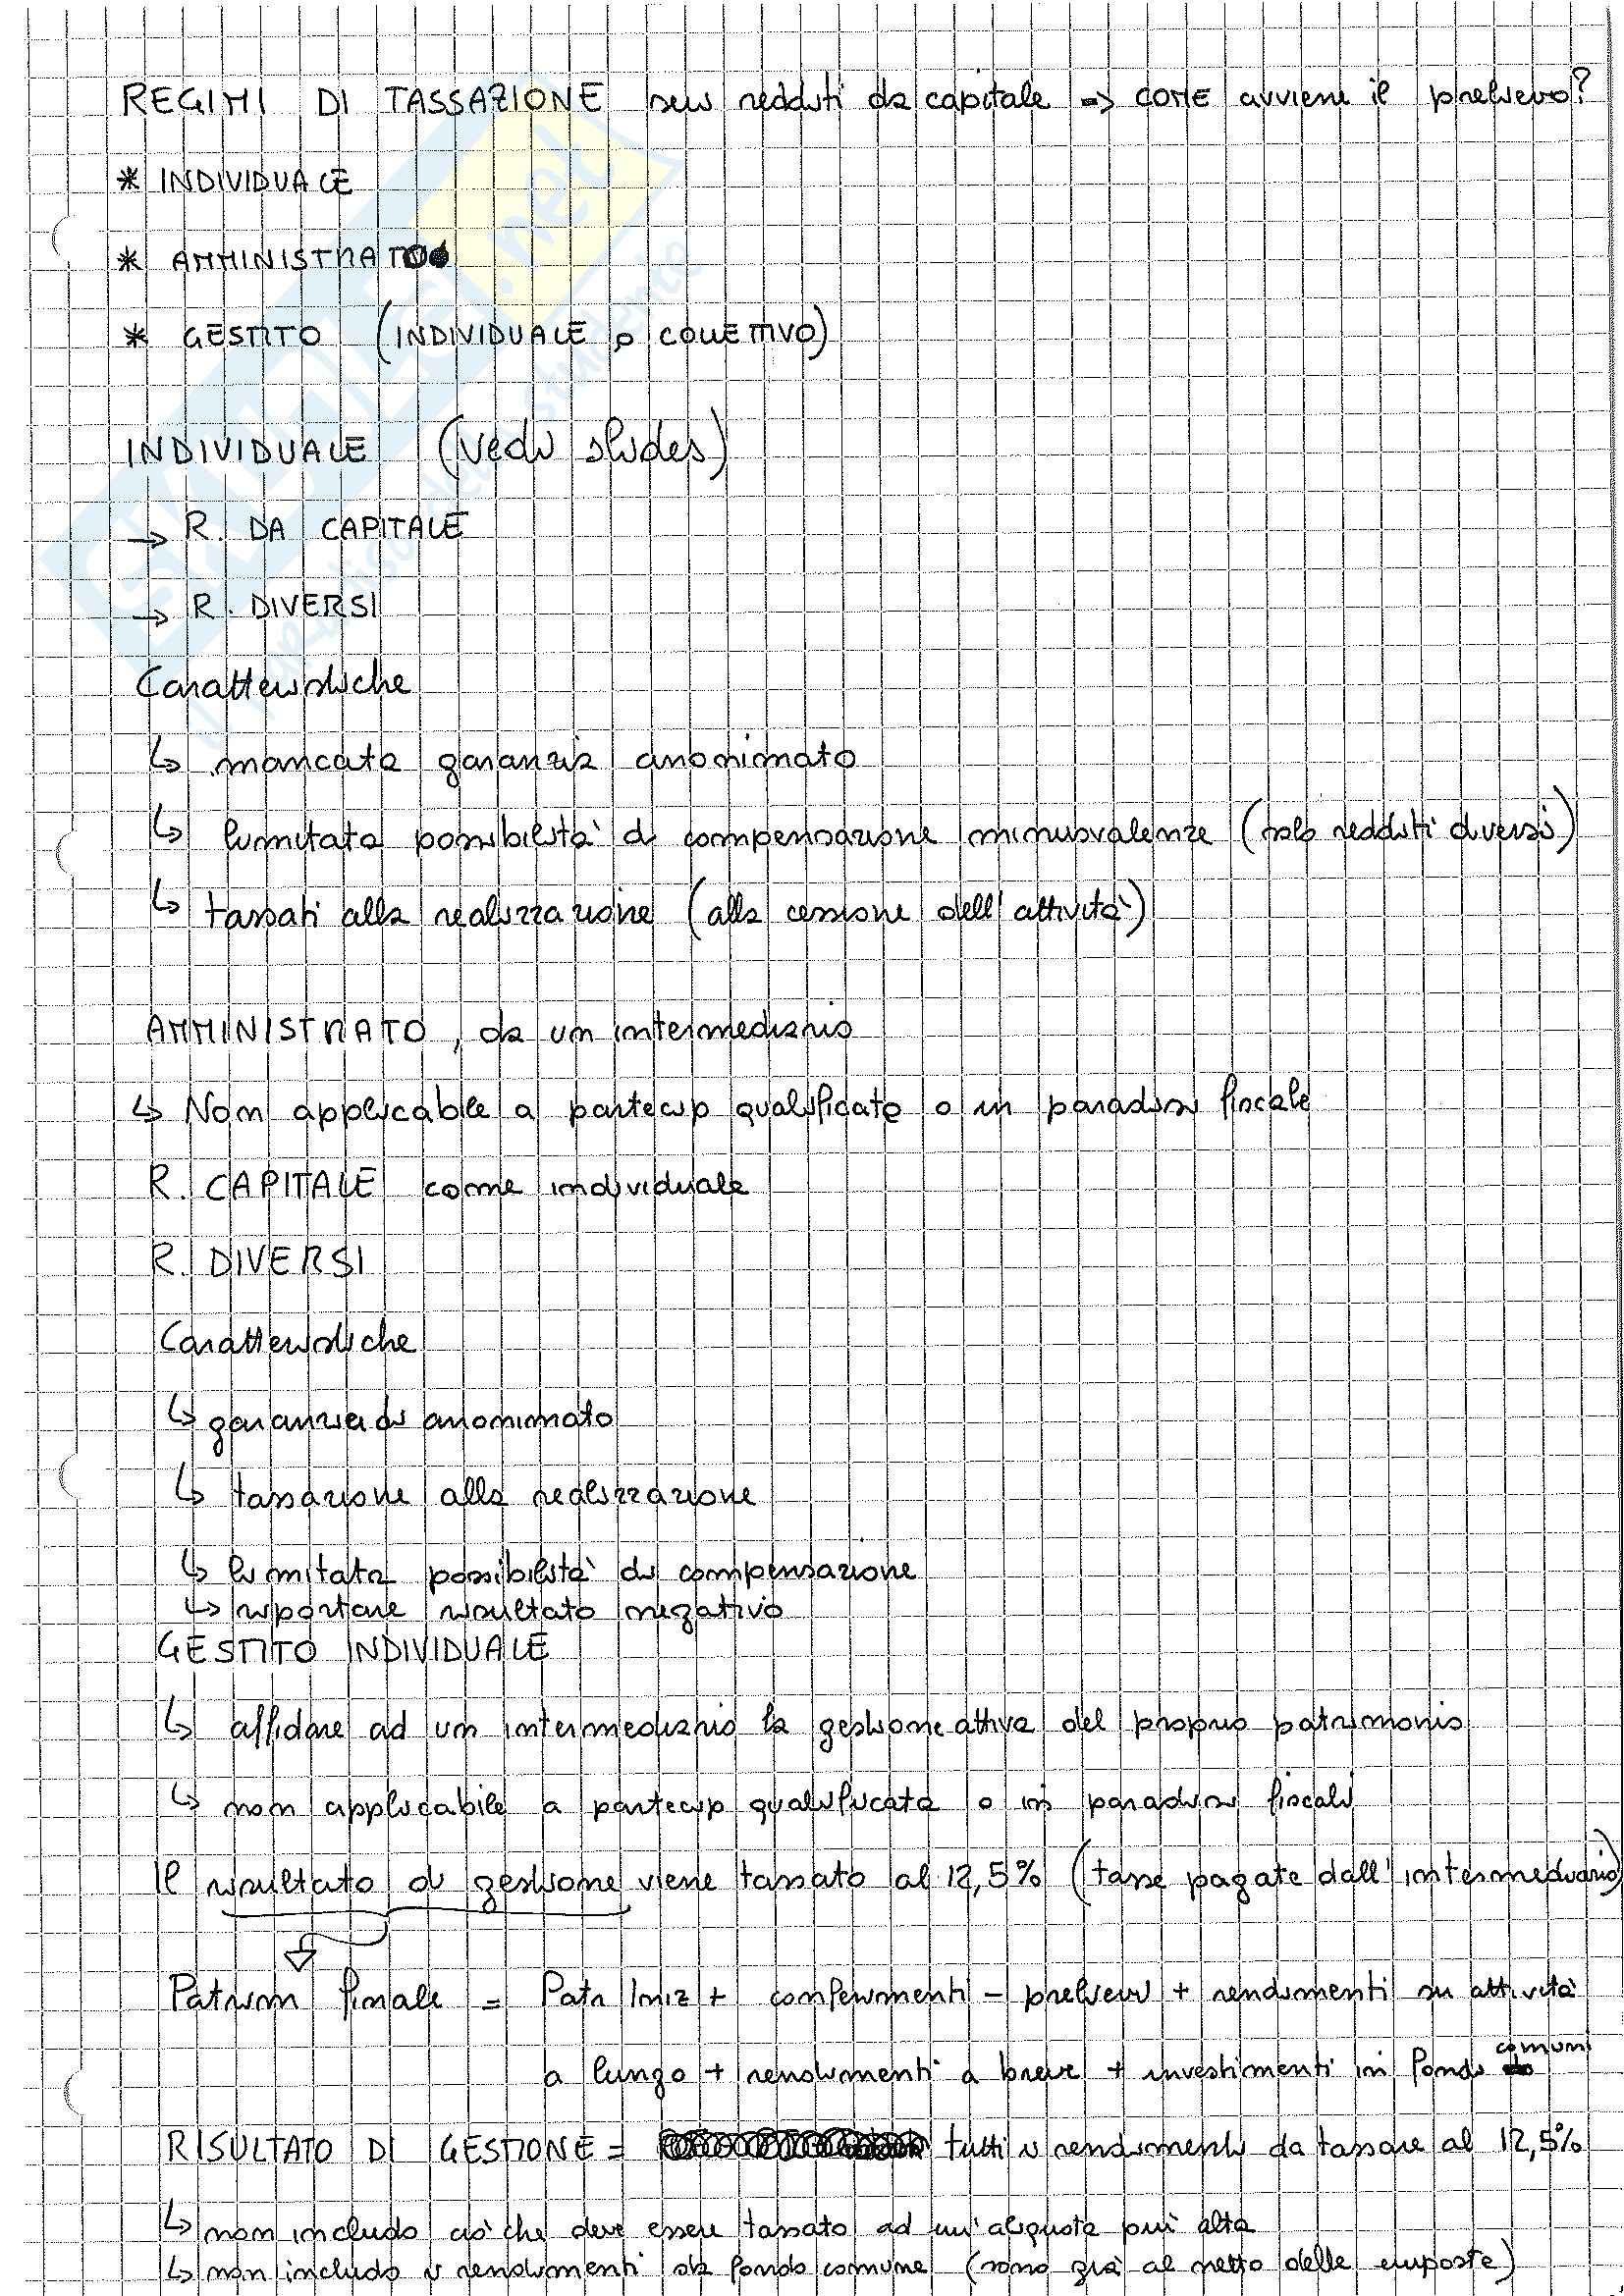 REGIMI DI TASSAZIONE sui redditi da capitale => COME avviene il prelievo?
* INDIVIDUALE
* AMMINISTRATO
* GESTITO (INDIVIDUALE o COLLETTIVO)
INDIVIDUALE (vedi slides)
→ R. DA CAPITALE
→ R. DIVERSI
Caratteristiche
↳ mancata garanzia anonimato
↳ limitata possibilità di compensazione minusvalenze (solo redditi diversi)
↳ tassati alla realizzazione (alla cessione dell'attività)
AMMINISTRATO, da un intermediario
↳ Non applicabile a partecip qualificate o in paradisi fiscale
R. CAPITALE come individuale
R. DIVERSI
Caratteristiche
↳ garanzia di anonimato
↳ tassazione alla realizzazione
↳ limitata possibilità di compensazione
↳ riportare risultato negativo
GESTITO INDIVIDUALE
↳ affidare ad un intermediario la gestione attiva del proprio patrimonio
↳ non applicabile a partecip qualificata o in paradisi fiscali
Il risultato di gestione viene tassato al 12,5% (tasse pagate dall'intermediario)
Patrim finale = Patr Iniz + conferimenti - prelievi + rendimenti su attività
a lungo + rendimenti a breve + investimenti in fondi comuni
RISULTATO DI GESTIONE = tutti i rendimenti da tassare al 12,5%
↳ non includo ciò che deve essere tassato ad un'aliquota più alta
↳ non includo i rendimenti da fondo comune (sono già al netto delle imposte)